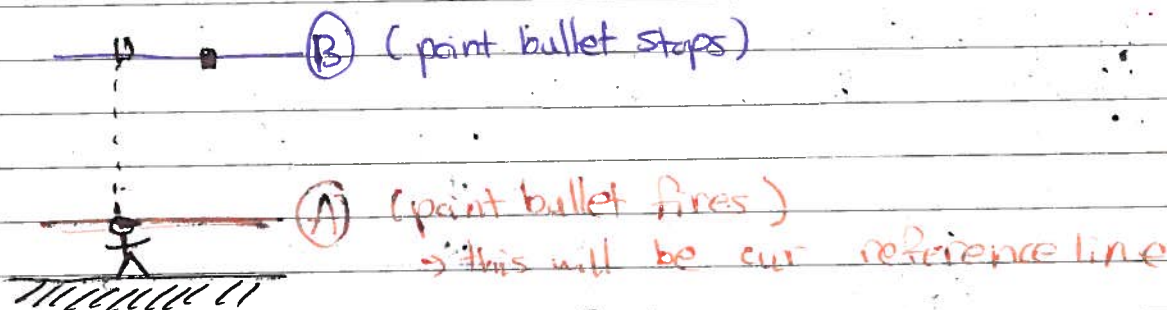 B (point bullet stops)
A (point bullet fires)
→ this will be our reference line